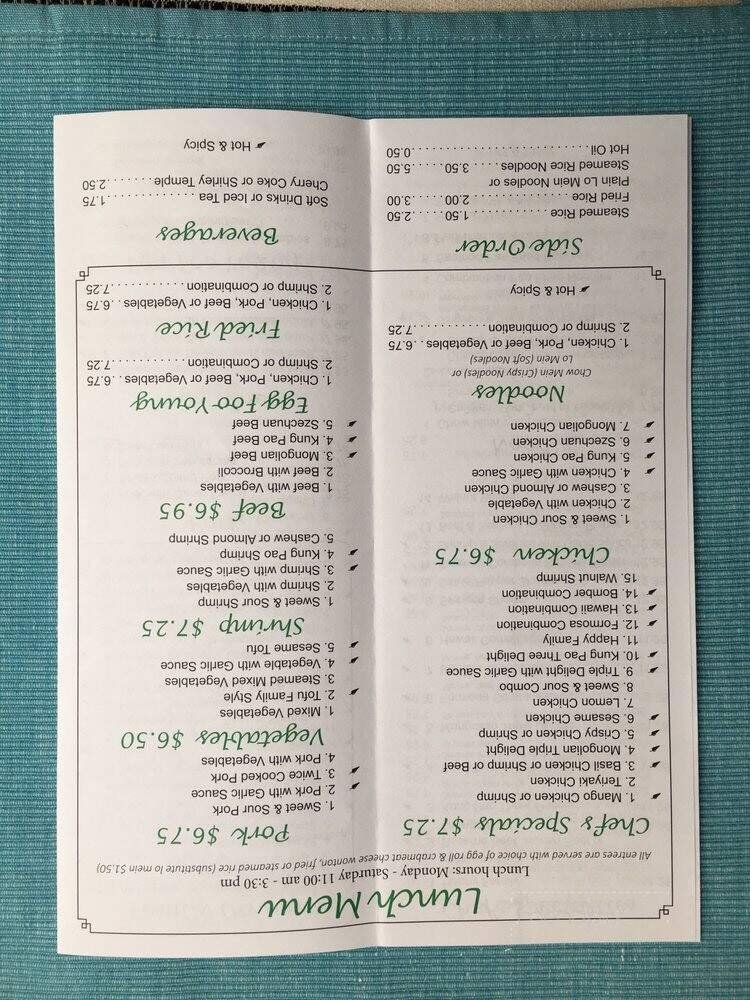 Lunch Menu
Lunch hours: Monday - Saturday 11:00 am - 3:30 pm
All entrees are served with choice of egg roll & crabmeat cheese wonton, fried or steamed rice (substitute lo mein $1.50)
Chef's Specials $7.25
1. Mango Chicken or Shrimp
2. Teriyaki Chicken
3. Basil Chicken or Shrimp or Beef
4. Mongolian Triple Delight
5. Crispy Chicken or Shrimp
6. Sesame Chicken
7. Lemon Chicken
8. Sweet & Sour Combo
9. Triple Delight with Garlic Sauce
10. Kung Pao Three Delight
11. Happy Family
12. Formosa Combination
13. Hawaii Combination
14. Bomber Combination
15. Walnut Shrimp
Chicken $6.75
1. Sweet & Sour Chicken
2. Chicken with Vegetable
3. Cashew or Almond Chicken
4. Chicken with Garlic Sauce
5. Kung Pao Chicken
6. Szechuan Chicken
7. Mongolian Chicken
Noodles
Chow Mein (Crispy Noodles) or
Lo Mein (Soft Noodles)
1. Chicken, Pork, Beef or Vegetables . . 6.75
2. Shrimp or Combination . . . . . . . . . . . 7.25
Hot & Spicy
Pork $6.75
1. Sweet & Sour Pork
2. Pork with Garlic Sauce
3. Twice Cooked Pork
4. Pork with Vegetables
Vegetables $6.50
1. Mixed Vegetables
2. Tofu Family Style
3. Steamed Mixed Vegetables
4. Vegetable with Garlic Sauce
5. Sesame Tofu
Shrimp $7.25
1. Sweet & Sour Shrimp
2. Shrimp with Vegetables
3. Shrimp with Garlic Sauce
4. Kung Pao Shrimp
5. Cashew or Almond Shrimp
Beef $6.95
1. Beef with Vegetables
2. Beef with Broccoli
3. Mongolian Beef
4. Kung Pao Beef
5. Szechuan Beef
Egg Foo Young
1. Chicken, Pork, Beef or Vegetables . . 6.75
2. Shrimp or Combination . . . . . . . . . . . 7.25
Fried Rice
1. Chicken, Pork, Beef or Vegetables . . 6.75
2. Shrimp or Combination . . . . . . . . . . . 7.25
Side Order
Steamed Rice . . . . . . . . . . . 1.50 . . . . . 2.50
Fried Rice . . . . . . . . . . . . . . 2.00 . . . . . 3.00
Plain Lo Mein Noodles or
Steamed Rice Noodles . . . . 3.50 . . . . . 5.50
Hot Oil . . . . . . . . . . . . . . . . . . . . . . . . . . 0.50
Beverages
Soft Drinks or Iced Tea . . . . . . . . . . . . . 1.75
Cherry Coke or Shirley Temple . . . . . . . 2.50
Hot & Spicy